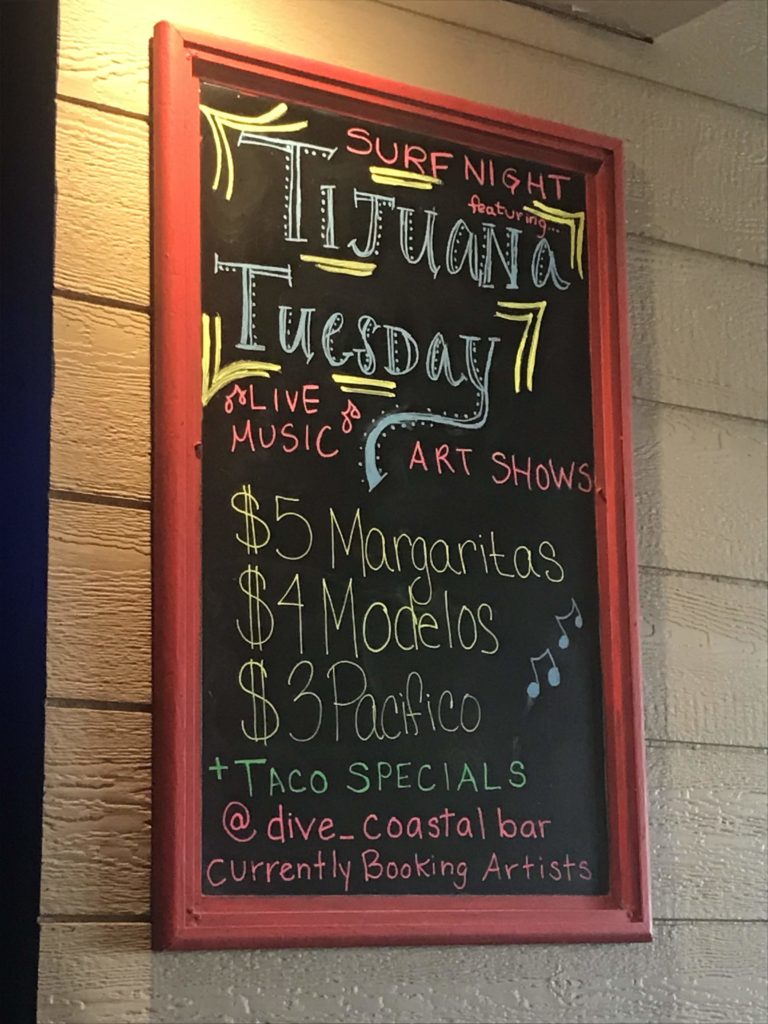 SURF NIGHT
featuring...
TIJUANA
TUESDAY
LIVE
MUSIC
ART SHOWS
$5 Margaritas
$4 Modelos
$3 Pacifico
+ TACO SPECIALS
@dive_coastal bar
Currently Booking Artists